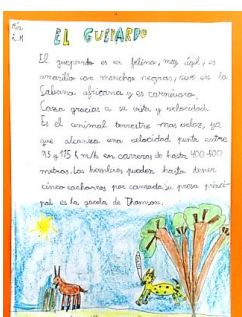 EL GUEPARDO
El guepardo es un felino, muy ágil, es
amarillo con manchas negras, vive en la
Sabana africana y es carnívoro.
Caza gracias a su vista y velocidad.
Es el animal terrestre mas veloz, ya
que alcanza una velocidad punta entre
95 y 115 km/h en carreras de hasta 400-500
metros. Las hembras pueden hasta tener
cinco cachorros por camada. Su presa princi-
pal es la gacela de Thomson.